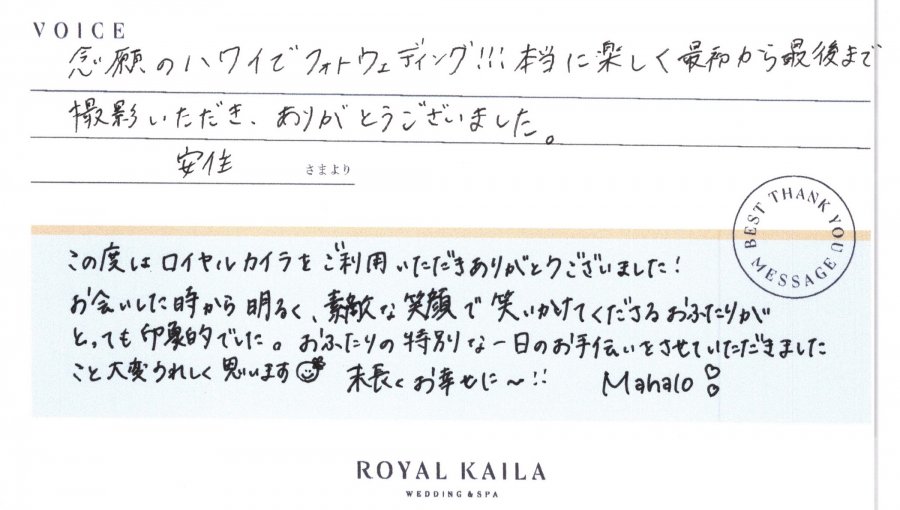 VOICE
念願のハワイでフォトウェディング!!! 本当に楽しく最初から最後まで
撮影いただき、ありがとうございました。
安住 さまより
BEST THANK YOU MESSAGE
この度はロイヤルカイラをご利用いただきありがとうございました!
お会いした時から明るく、素敵な笑顔で笑いかけてくださるおふたりが
とっても印象的でした。おふたりの特別な一日のお手伝いをさせていただきました
こと大変うれしく思います 末長くお幸せに〜!! Mahalo
ROYAL KAILA
WEDDING & SPA